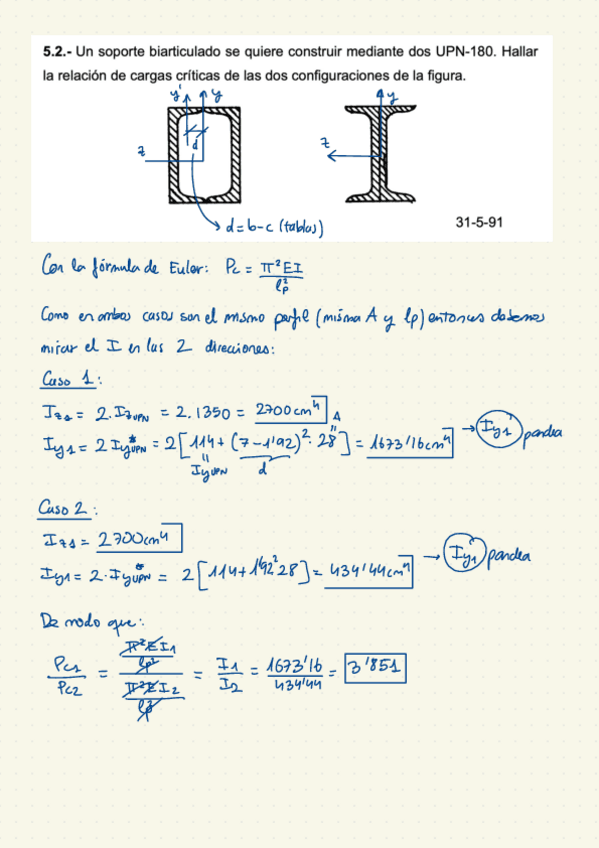 5.2.- Un soporte biarticulado se quiere construir mediante dos UPN-180. Hallar
la relación de cargas críticas de las dos configuraciones de la figura.
y' y y
z d z
d = b-c (tablas)
31-5-91
Con la fórmula de Euler: Pc = π²EI / lp²
Como en ambos casos son el mismo perfil (misma A y lp) entonces debemos
mirar el I en las 2 direciones:
Caso 1:
Iz1 = 2·IzUPN = 2·1350 = 2700 cm⁴
Iy1 = 2 Iy*UPN = 2[114 + (7-1'92)²·28] = 1673'16 cm⁴ → Iy1 pandea
IyUPN d A
Caso 2:
Iz1 = 2700 cm⁴
Iy1 = 2·Iy*UPN = 2[114 + 1'92² 28] = 434'44 cm⁴ → Iy1 pandea
De modo que:
Pc1 / Pc2 = (π²EI1 / lp²) / (π²EI2 / lp²) = I1 / I2 = 1673'16 / 434'44 = 3'851